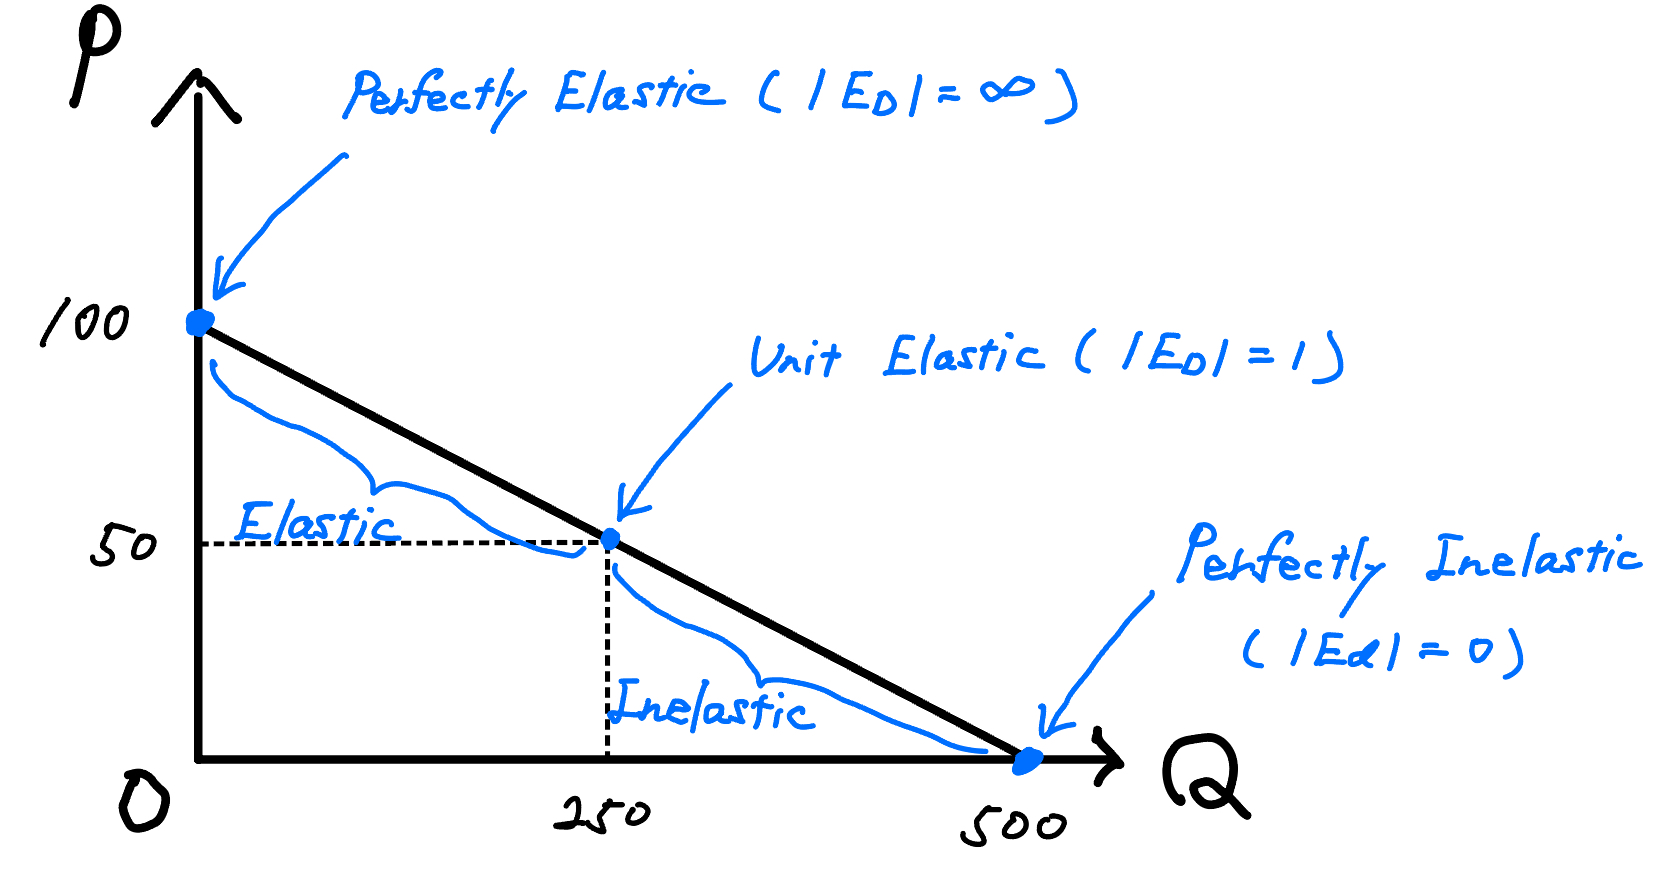 P
Perfectly Elastic ( |ED| = ∞ )
100
Unit Elastic ( |ED| = 1 )
Elastic
50
Perfectly Inelastic
( |Ed| = 0 )
Inelastic
0
250
500
Q